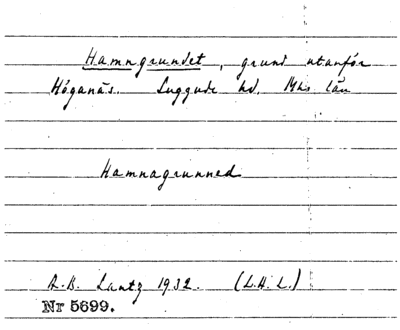 Hamngrundet, grund utanför
Höganäs. Luggude hd. Mhs län
Hamnagrunned
A.B. Lantz 1932. (L.H.L.)
Nr 5699.